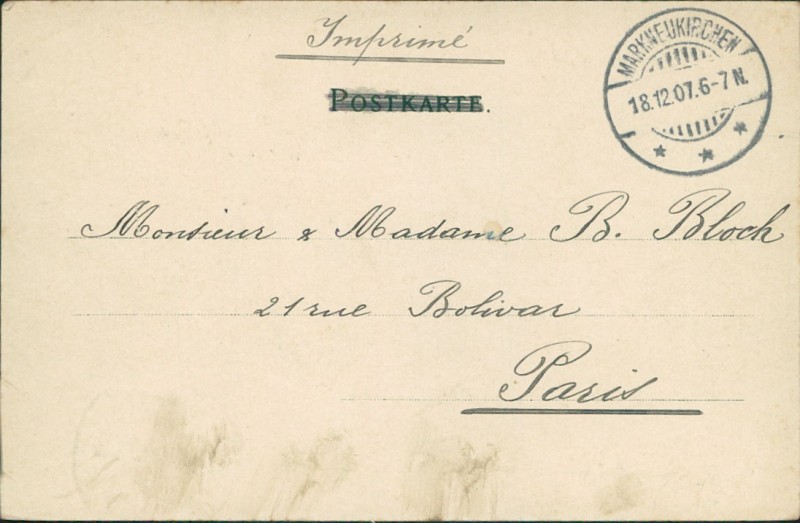 Imprimé
POSTKARTE.
MARKNEUKIRCHEN
18.12.07.6-7N.
Monsieur & Madame B. Bloch
21 rue Bolivar
Paris